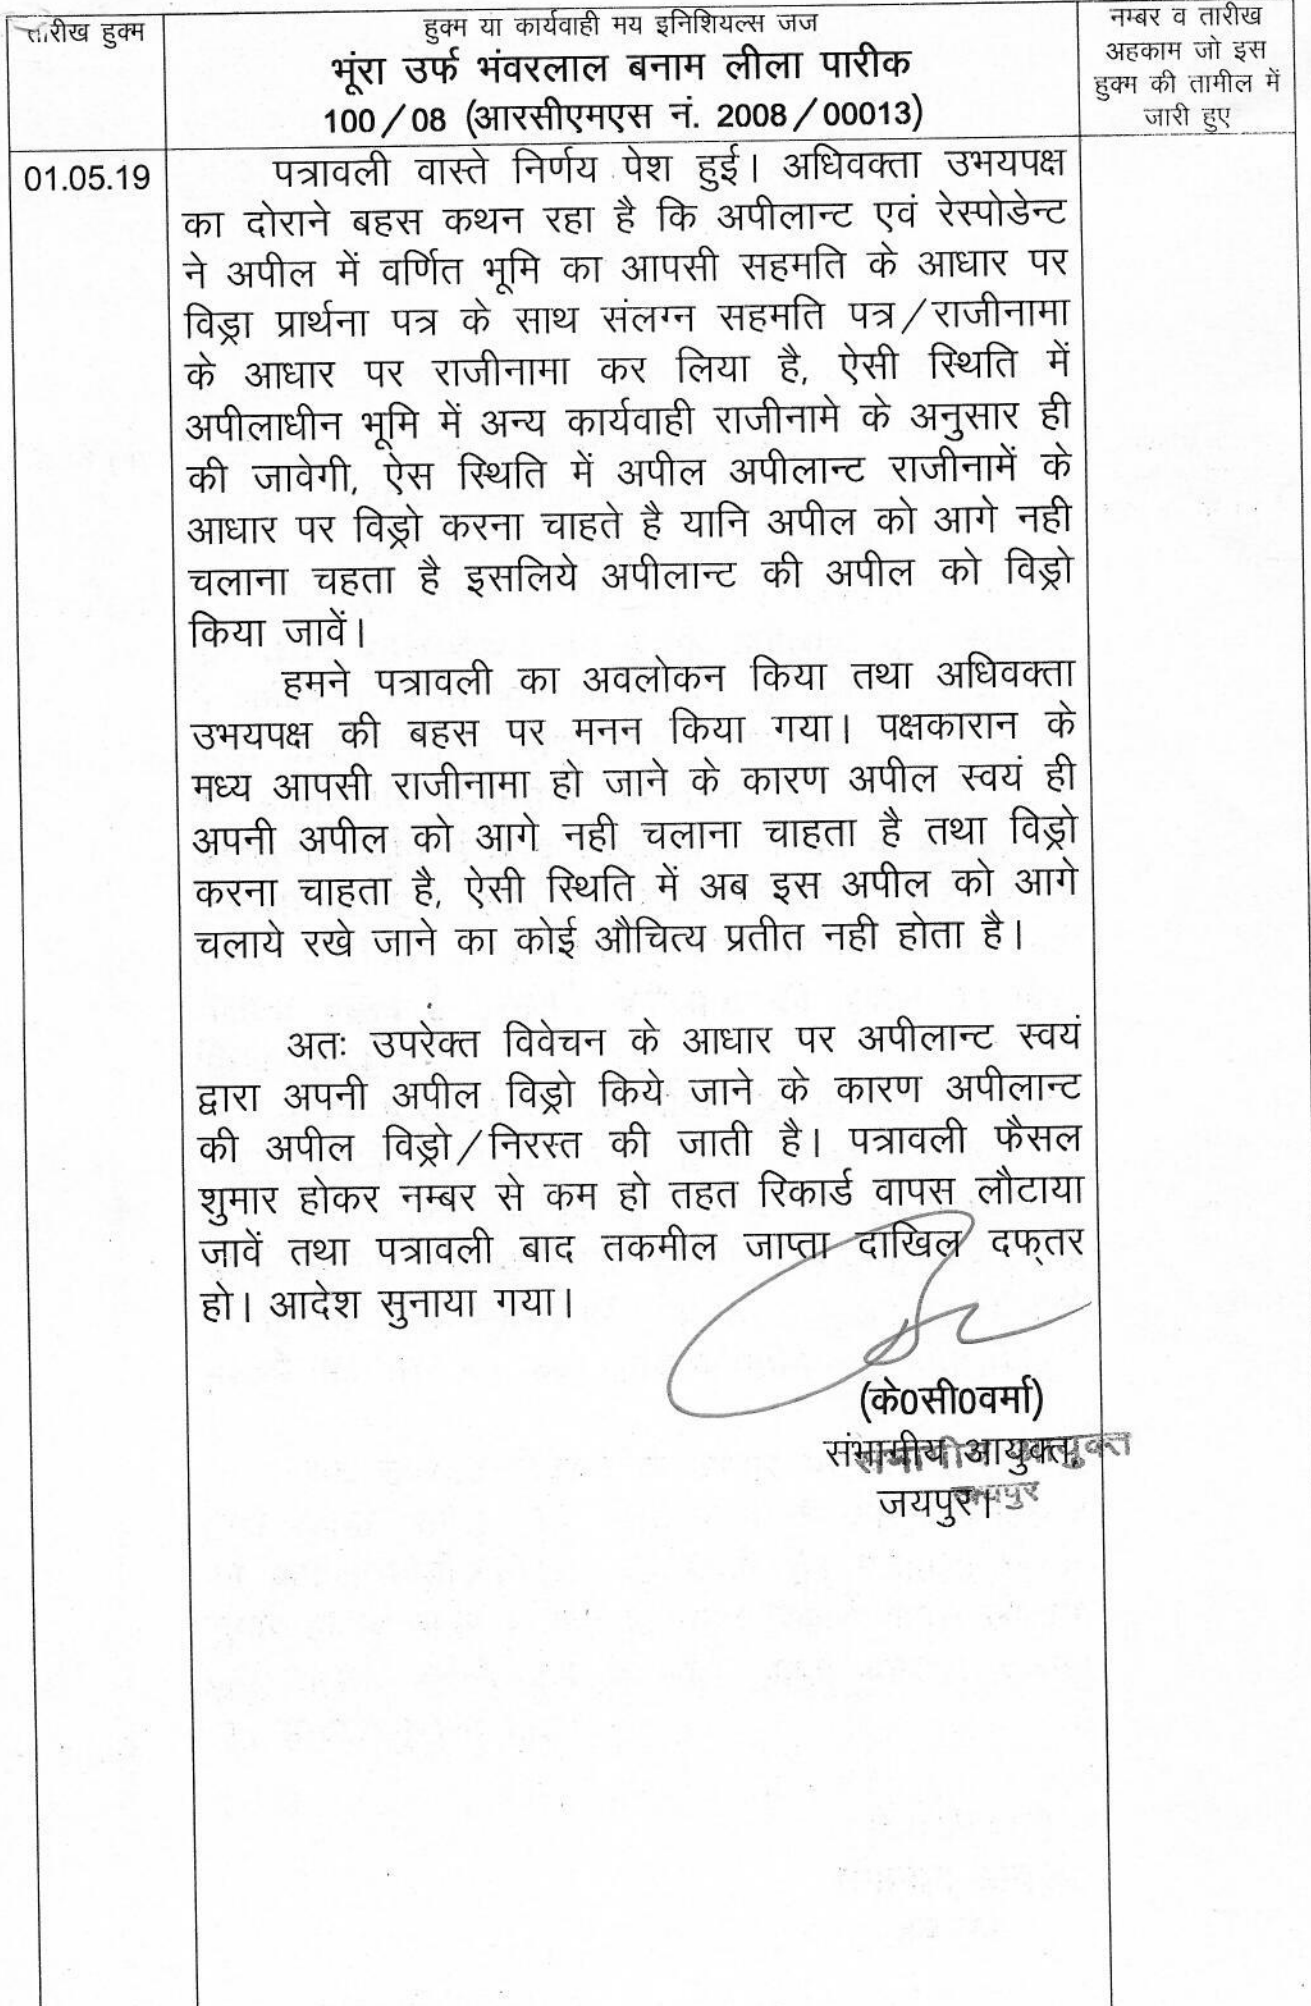 तारीख हुक्म
हुक्म या कार्यवाही मय इनिशियल्स जज
भूंरा उर्फ भंवरलाल बनाम लीला पारीक
100/08 (आरसीएमएस नं. 2008/00013)
नम्बर व तारीख
अहकाम जो इस
हुक्म की तामील में
जारी हुए
01.05.19
पत्रावली वास्ते निर्णय पेश हुई। अधिवक्ता उभयपक्ष
का दोराने बहस कथन रहा है कि अपीलान्ट एवं रेस्पोडेन्ट
ने अपील में वर्णित भूमि का आपसी सहमति के आधार पर
विड्रा प्रार्थना पत्र के साथ संलग्न सहमति पत्र/राजीनामा
के आधार पर राजीनामा कर लिया है, ऐसी स्थिति में
अपीलाधीन भूमि में अन्य कार्यवाही राजीनामे के अनुसार ही
की जावेगी, ऐस स्थिति में अपील अपीलान्ट राजीनामें के
आधार पर विड्रो करना चाहते है यानि अपील को आगे नही
चलाना चहता है इसलिये अपीलान्ट की अपील को विड्रो
किया जावें।
हमने पत्रावली का अवलोकन किया तथा अधिवक्ता
उभयपक्ष की बहस पर मनन किया गया। पक्षकारान के
मध्य आपसी राजीनामा हो जाने के कारण अपील स्वयं ही
अपनी अपील को आगे नही चलाना चाहता है तथा विड्रो
करना चाहता है, ऐसी स्थिति में अब इस अपील को आगे
चलाये रखे जाने का कोई औचित्य प्रतीत नही होता है।
अतः उपरेक्त विवेचन के आधार पर अपीलान्ट स्वयं
द्वारा अपनी अपील विड्रो किये जाने के कारण अपीलान्ट
की अपील विड्रो/निरस्त की जाती है। पत्रावली फैसल
शुमार होकर नम्बर से कम हो तहत रिकार्ड वापस लौटाया
जावें तथा पत्रावली बाद तकमील जाप्ता दाखिल दफ्तर
हो। आदेश सुनाया गया।
(के0सी0वर्मा)
संभागीय आयुक्त,
जयपुर।
संभागीय आयुक्त
जयपुर